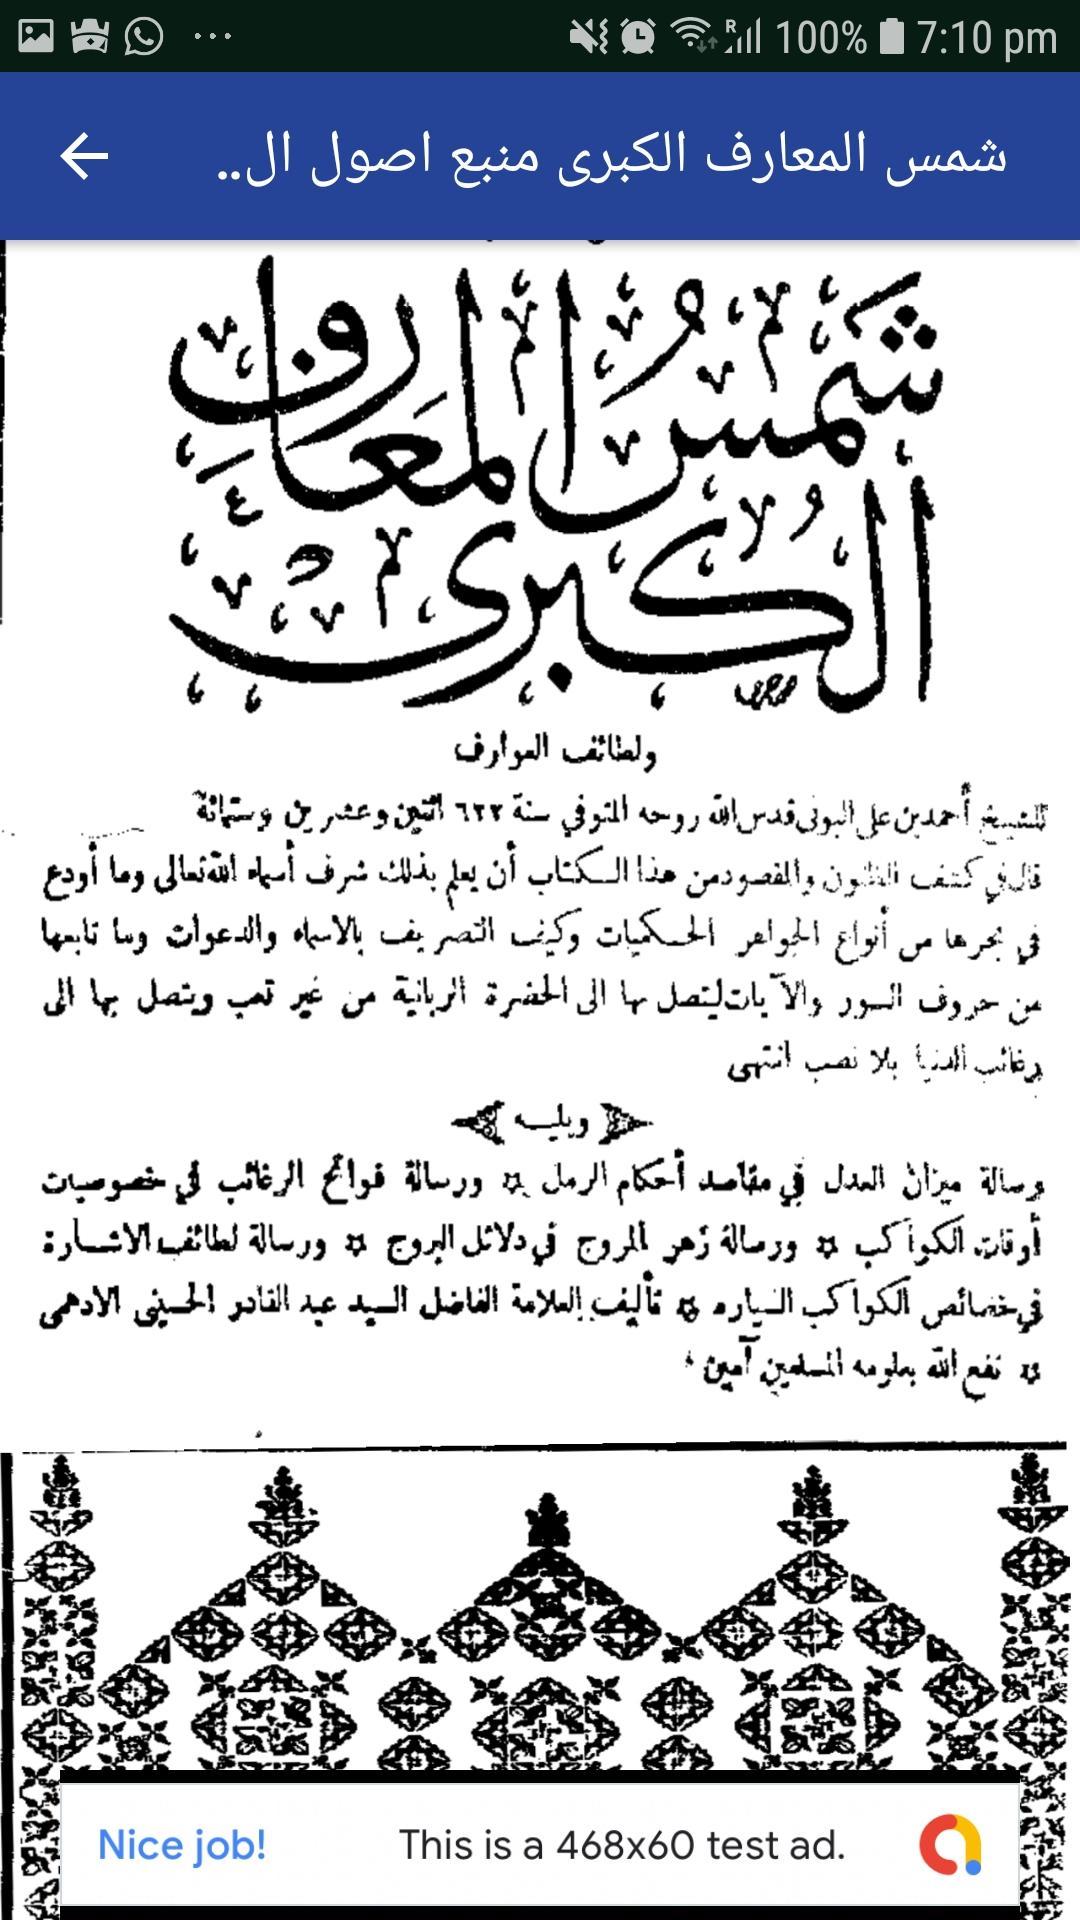 100% 7:10 pm
شمس المعارف الكبرى منبع اصول ال..
شمس المعارف
الكبرى
ولطائف العوارف
للشيخ أحمد بن على البونى قدس الله روحه المتوفي سنة ٦٢٢ اثنين وعشرين وستمائة
قال في كشف الظنون والمقصود من هذا الكتاب أن يعلم بذلك شرف أسماء الله تعالى وما أودع
في بحرها من أنواع الجواهر الحكميات وكيف التصريف بالاسماء والدعوات وما تابعها
من حروف السور والآيات ليتصل بها الى الحضرة الربانية من غير تعب ويتصل بها الى
رغائب الدنيا بلا نصب انتهى
ويليه
رسالة ميزان العدل في مقاصد أحكام الرمل ورسالة فواتح الرغائب في خصوصيات
أوقات الكواكب ورسالة زهر المروج في دلائل البروج ورسالة لطائف الاشارة
في خصائص الكواكب السياره تأليف العلامة الفاضل السيد عبد القادر الحسينى الادهمى
نفع الله بعلومه المسلمين آمين
Nice job! This is a 468x60 test ad.